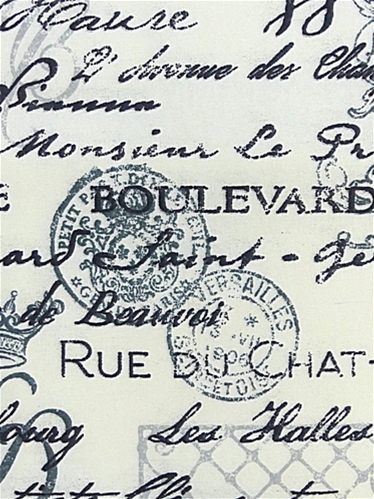 Haure 18
2' Avenue des Cham
Vianna
Monsieur Le Pr
E BOULEVARD
ard Saint - Ge
de Beauvoi
VERSAILLES
RUE DU CHAT-
bourg Les Halles